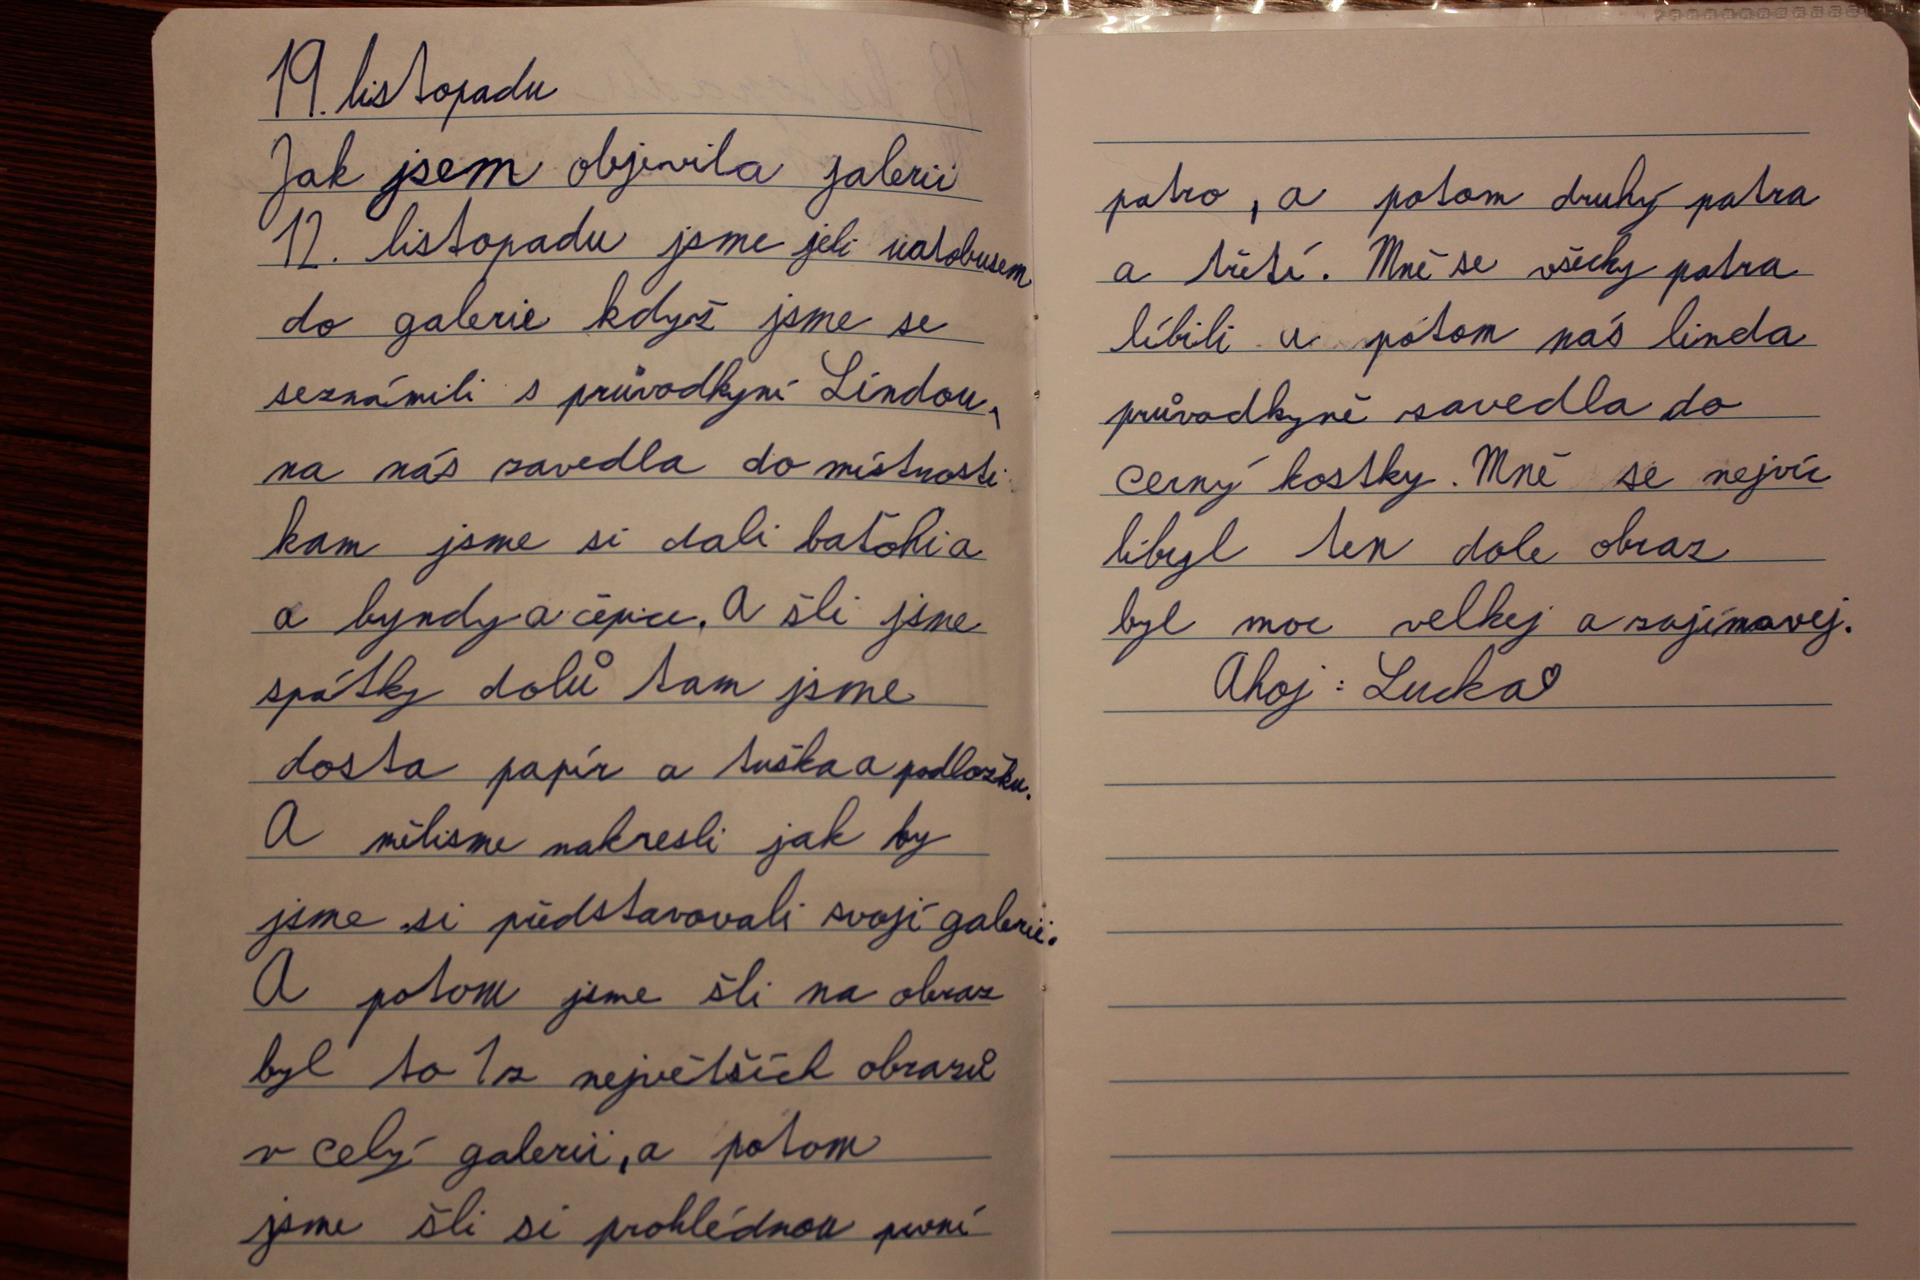 19. listopadu
Jak jsem objevila galerii
12. listopadu jsme jeli uatobusem
do galerie když jsme se
seznámili s průvodkyní Lindou,
na nás zavedla do místnosti
kam jsme si dali baťohi a
a byndy a čepice. A šli jsme
spátky dolů tam jsme
dosta papír a tuška a podložku.
A mělisme nakresli jak by
jsme si představovali svojí galerii.
A potom jsme šli na obraz
byl to 1z největších obrazů
v celý galerii, a potom
jsme šli si prohlédnou první
patro, a potom druhý patra
a třetí. Mně se všecky patra
líbili a potom nás linda
průvodkyně zavedla do
cerný kostky. Mně se nejvíc
libyl ten dole obraz
byl moc velkej a zajímavej.
Ahoj: Lucka